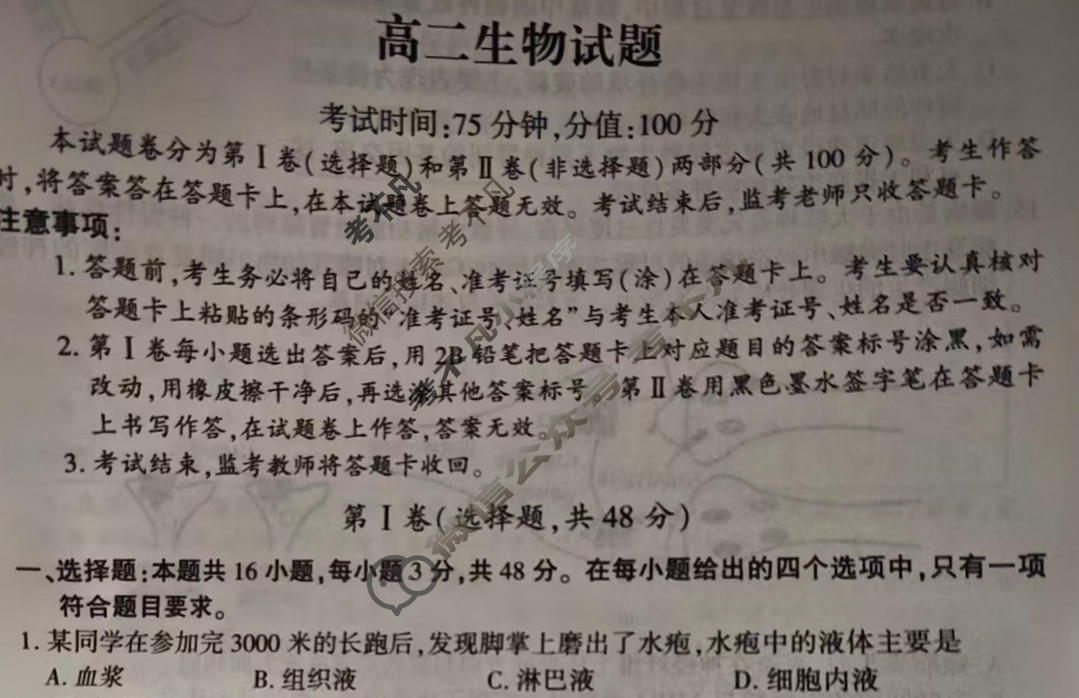 高二生物试题
考试时间:75分钟,分值:100分
本试题卷分为第Ⅰ卷(选择题)和第Ⅱ卷(非选择题)两部分(共100分)。考生作答
时,将答案答在答题卡上,在本试题卷上答题无效。考试结束后,监考老师只收答题卡。
注意事项:
1.答题前,考生务必将自己的姓名、准考证号填写(涂)在答题卡上。考生要认真核对
答题卡上粘贴的条形码的“准考证号、姓名”与考生本人准考证号、姓名是否一致。
2.第Ⅰ卷每小题选出答案后,用2B铅笔把答题卡上对应题目的答案标号涂黑,如需
改动,用橡皮擦干净后,再选涂其他答案标号。第Ⅱ卷用黑色墨水签字笔在答题卡
上书写作答,在试题卷上作答,答案无效。
3.考试结束,监考教师将答题卡收回。
第Ⅰ卷(选择题,共48分)
一、选择题:本题共16小题,每小题3分,共48分。在每小题给出的四个选项中,只有一项
符合题目要求。
1.某同学在参加完3000米的长跑后,发现脚掌上磨出了水疱,水疱中的液体主要是
A.血浆 B.组织液 C.淋巴液 D.细胞内液
考不凡
微信搜索考不凡
考不凡小程序
微信公众号